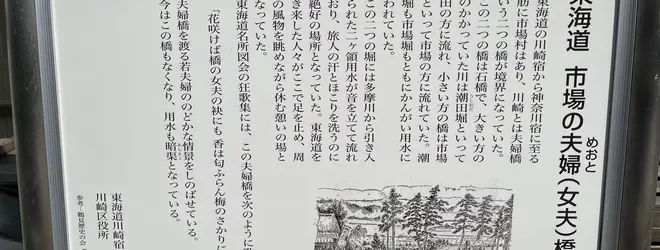 東海道 市場の夫婦(女夫)橋
めおと
東海道の川崎宿から神奈川宿に至る
筋に市場村はあり、川崎とは夫婦橋
いう二つの橋が境界になっていた。
この二つの橋は石橋で、大きい方の
のかかっていた川は潮田堀といって
田の方に流れ、小さい方の橋は市場
といって市場の方に流れていた。潮
堀も市場堀もともにかんがい用水に
われていた。
この二つの堀には多摩川から引き入
られた二ヶ領用水が音を立てて流れ
おり、旅人の汗とほこりを洗うのに
絶好の場所となっていた。東海道を
き来した人々がここで足を止め、周
の風物を眺めながら休む憩いの場と
なっていた。
東海道名所図会の狂歌集には、この夫婦橋を次のように
「花咲けば橋の女夫の袂にも 香は匂ふらん梅のさかりに
夫婦橋を渡る若夫婦ののどかな情景をしのばせている。
今はこの橋もなくなり、用水も暗渠となっている。
東海道川崎宿
川崎区役所
参考:鶴見歴史の会